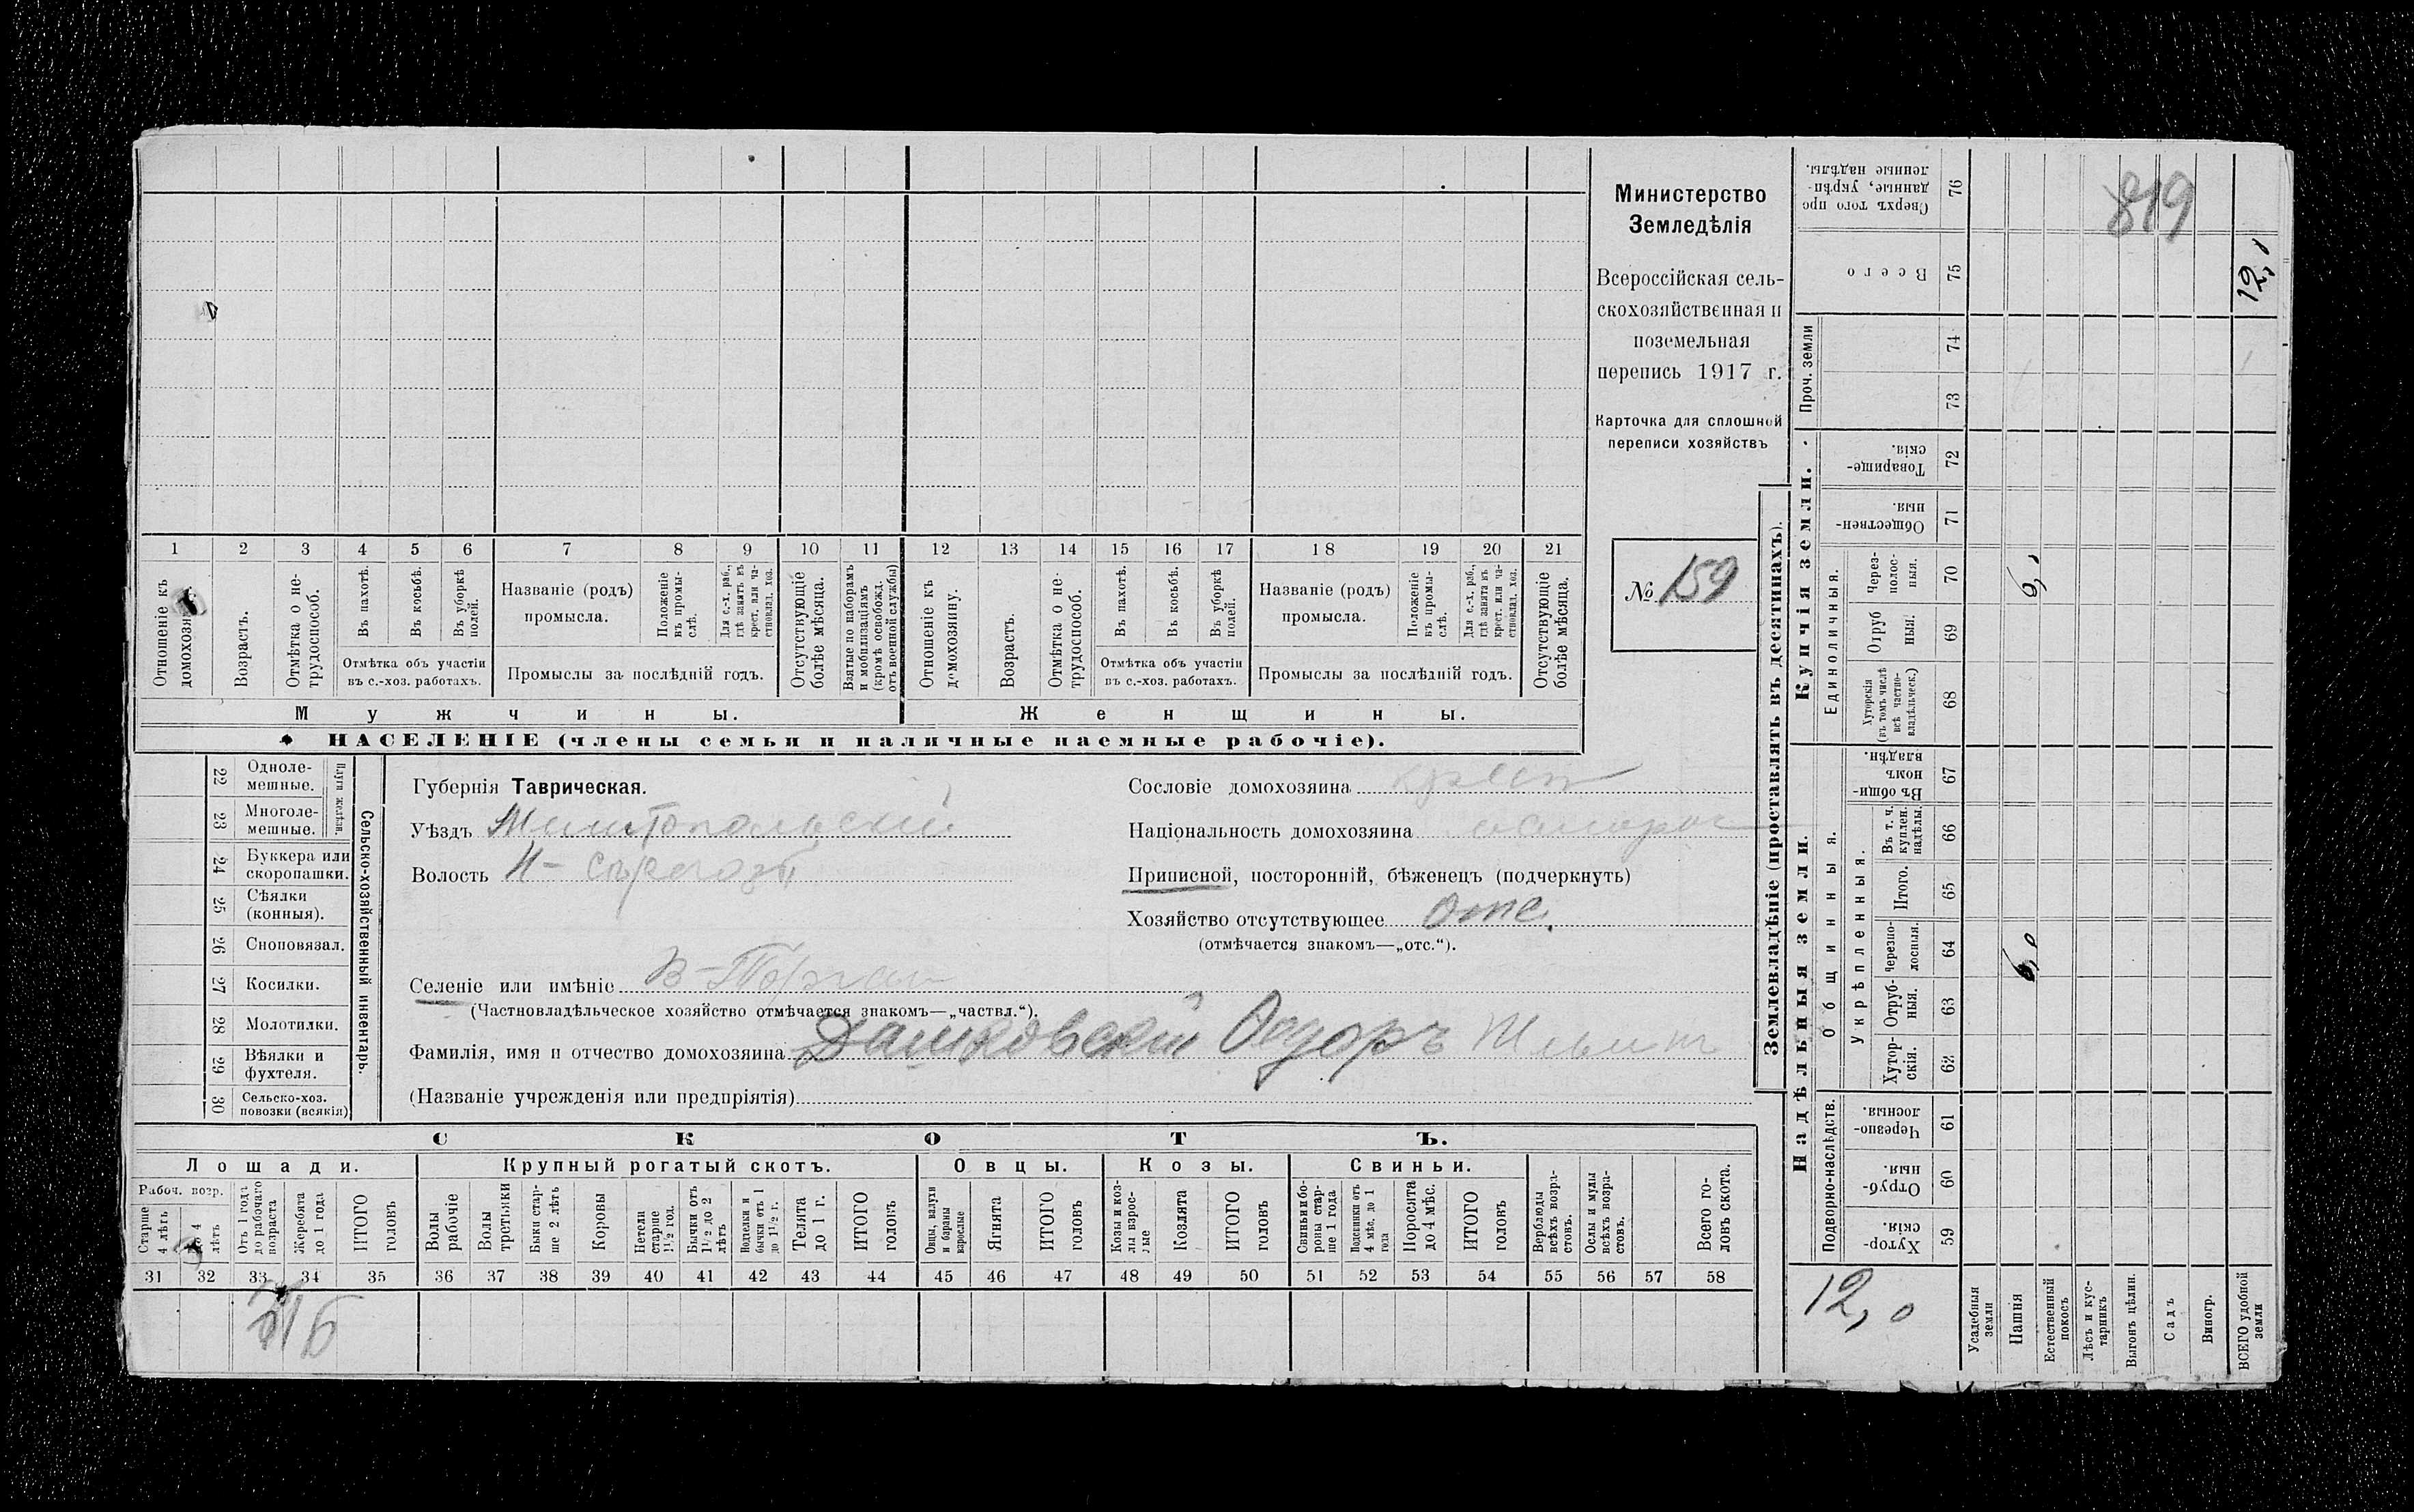 Министерство
Земледѣлія
Всероссійская сель-
скохозяйственная и
поземельная
перепись 1917 г.
Карточка для сплошной
переписи хозяйствъ
№ 159
819
1 2 3 4 5 6 7 8 9 10 11 12 13 14 15 16 17 18 19 20 21
Отношеніе къ домохозя
Возрастъ.
Отмѣтка о не-
трудоспособ.
Въ пахотѣ.
Въ косьбѣ.
Въ уборкѣ
полей.
Отмѣтка объ участіи
въ с.-хоз. работахъ.
Названіе (родъ)
промысла.
Положеніе
въ промы-
слѣ.
Для с.-х. раб.,
гдѣ занятъ въ
крест. или ча-
стновлад. хоз.
Промыслы за послѣдній годъ.
Отсутствующіе
болѣе мѣсяца.
Взятые по наборамъ
и мобилизаціямъ
(кромѣ освобожд.
отъ военной службы)
Отношеніе къ
домохозяину.
Возрастъ.
Отмѣтка о не-
трудоспособ.
Въ пахотѣ.
Въ косьбѣ.
Въ уборкѣ
полей.
Отмѣтка объ участіи
въ с.-хоз. работахъ.
Названіе (родъ)
промысла.
Положеніе
въ промы-
слѣ.
Для с.-х. раб.,
гдѣ занята въ
крест. или ча-
стновлад. хоз.
Промыслы за послѣдній годъ.
Отсутствующіе
болѣе мѣсяца.
Мужчины.
Женщины.
НАСЕЛЕНІЕ (члены семьи и наличные наемные рабочіе).
22 Одноле-
мешные.
23 Многоле-
мешные.
Плуги желѣзн.
24 Буккера или
скоропашки.
25 Сѣялки
(конныя).
26 Сноповязал.
27 Косилки.
28 Молотилки.
29 Вѣялки и
фухтеля.
30 Сельско-хоз.
повозки (всякія)
Сельско-хозяйственный инвентарь.
Губернія Таврическая.
Уѣздъ Мелитопольскій
Волость Н-Сѣрогозы
Селеніе или имѣніе В-Торгаи
(Частновладѣльческое хозяйство отмѣчается знакомъ—„частвл.“).
Фамилія, имя и отчество домохозяина Дашковскій Ѳедоръ
(Названіе учрежденія или предпріятія)
Сословіе домохозяина крест
Національность домохозяина малорос
Приписной, посторонній, бѣженецъ (подчеркнуть)
Хозяйство отсутствующее Отс.
(отмѣчается знакомъ—„отс.“).
СКОТЪ.
Лошади.
Крупный рогатый скотъ.
Овцы.
Козы.
Свиньи.
Рабоч. возр.
Старше
4 лѣтъ
До 4
лѣтъ
Отъ 1 года
до рабочаго
возраста
Жеребята
до 1 года
ИТОГО
головъ
Волы
рабочіе
Волы
третьяки
Быки стар-
ше 2 лѣтъ
Коровы
Нетели
старше
1½ год.
Бычки отъ
1½ до 2
лѣтъ
Подтелки и
бычки отъ 1
до 1½ г.
Телята
до 1 г.
ИТОГО
головъ
Овцы, валухи
и бараны
взрослые
Ягнята
ИТОГО
головъ
Козы и коз-
лы взрос-
лые
Козлята
ИТОГО
головъ
Свиньи и бо-
ровы стар-
ше 1 года
Подсвинки отъ
4 мѣс. до 1
года
Поросята
до 4 мѣс.
ИТОГО
головъ
Верблюды
всѣхъ возра-
стовъ.
Ослы и мулы
всѣхъ возра-
стовъ.
Всего го-
ловъ скота.
31 32 33 34 35 36 37 38 39 40 41 42 43 44 45 46 47 48 49 50 51 52 53 54 55 56 57 58
Землевладѣніе (проставлять въ десятинахъ).
Сверхъ того про
данные, укрѣп-
ленные надѣлы.
76
Всего
75
12,0
Проч. земли
74
73
Купчія земли.
Товарище-
скія.
72
Обществен-
ныя.
71
Единоличныя.
Через-
полос-
ныя.
70
6,0
Отруб
ныя.
69
Хуторскія
(въ томъ числѣ
всѣ частно-
владѣльческ.)
68
Надѣльныя земли.
Общинныя.
Въ общи-
номъ
владѣн.
67
Укрѣпленныя.
Въ т. ч.
куплен.
надѣлы.
66
Итого.
65
Черезпо-
лосныя.
64
6,0
Отруб-
ныя.
63
Хутор-
скія.
62
Подворно-наслѣдств.
Черезпо-
лосныя.
61
Отруб-
ныя.
60
Хутор-
скія.
59
12,0
Усадебныя
земли
Пашня
Естественный
покосъ
Лѣсъ и кус-
тарникъ
Выгонъ цѣлин.
Садъ
Виногр.
ВСЕГО удобной
земли